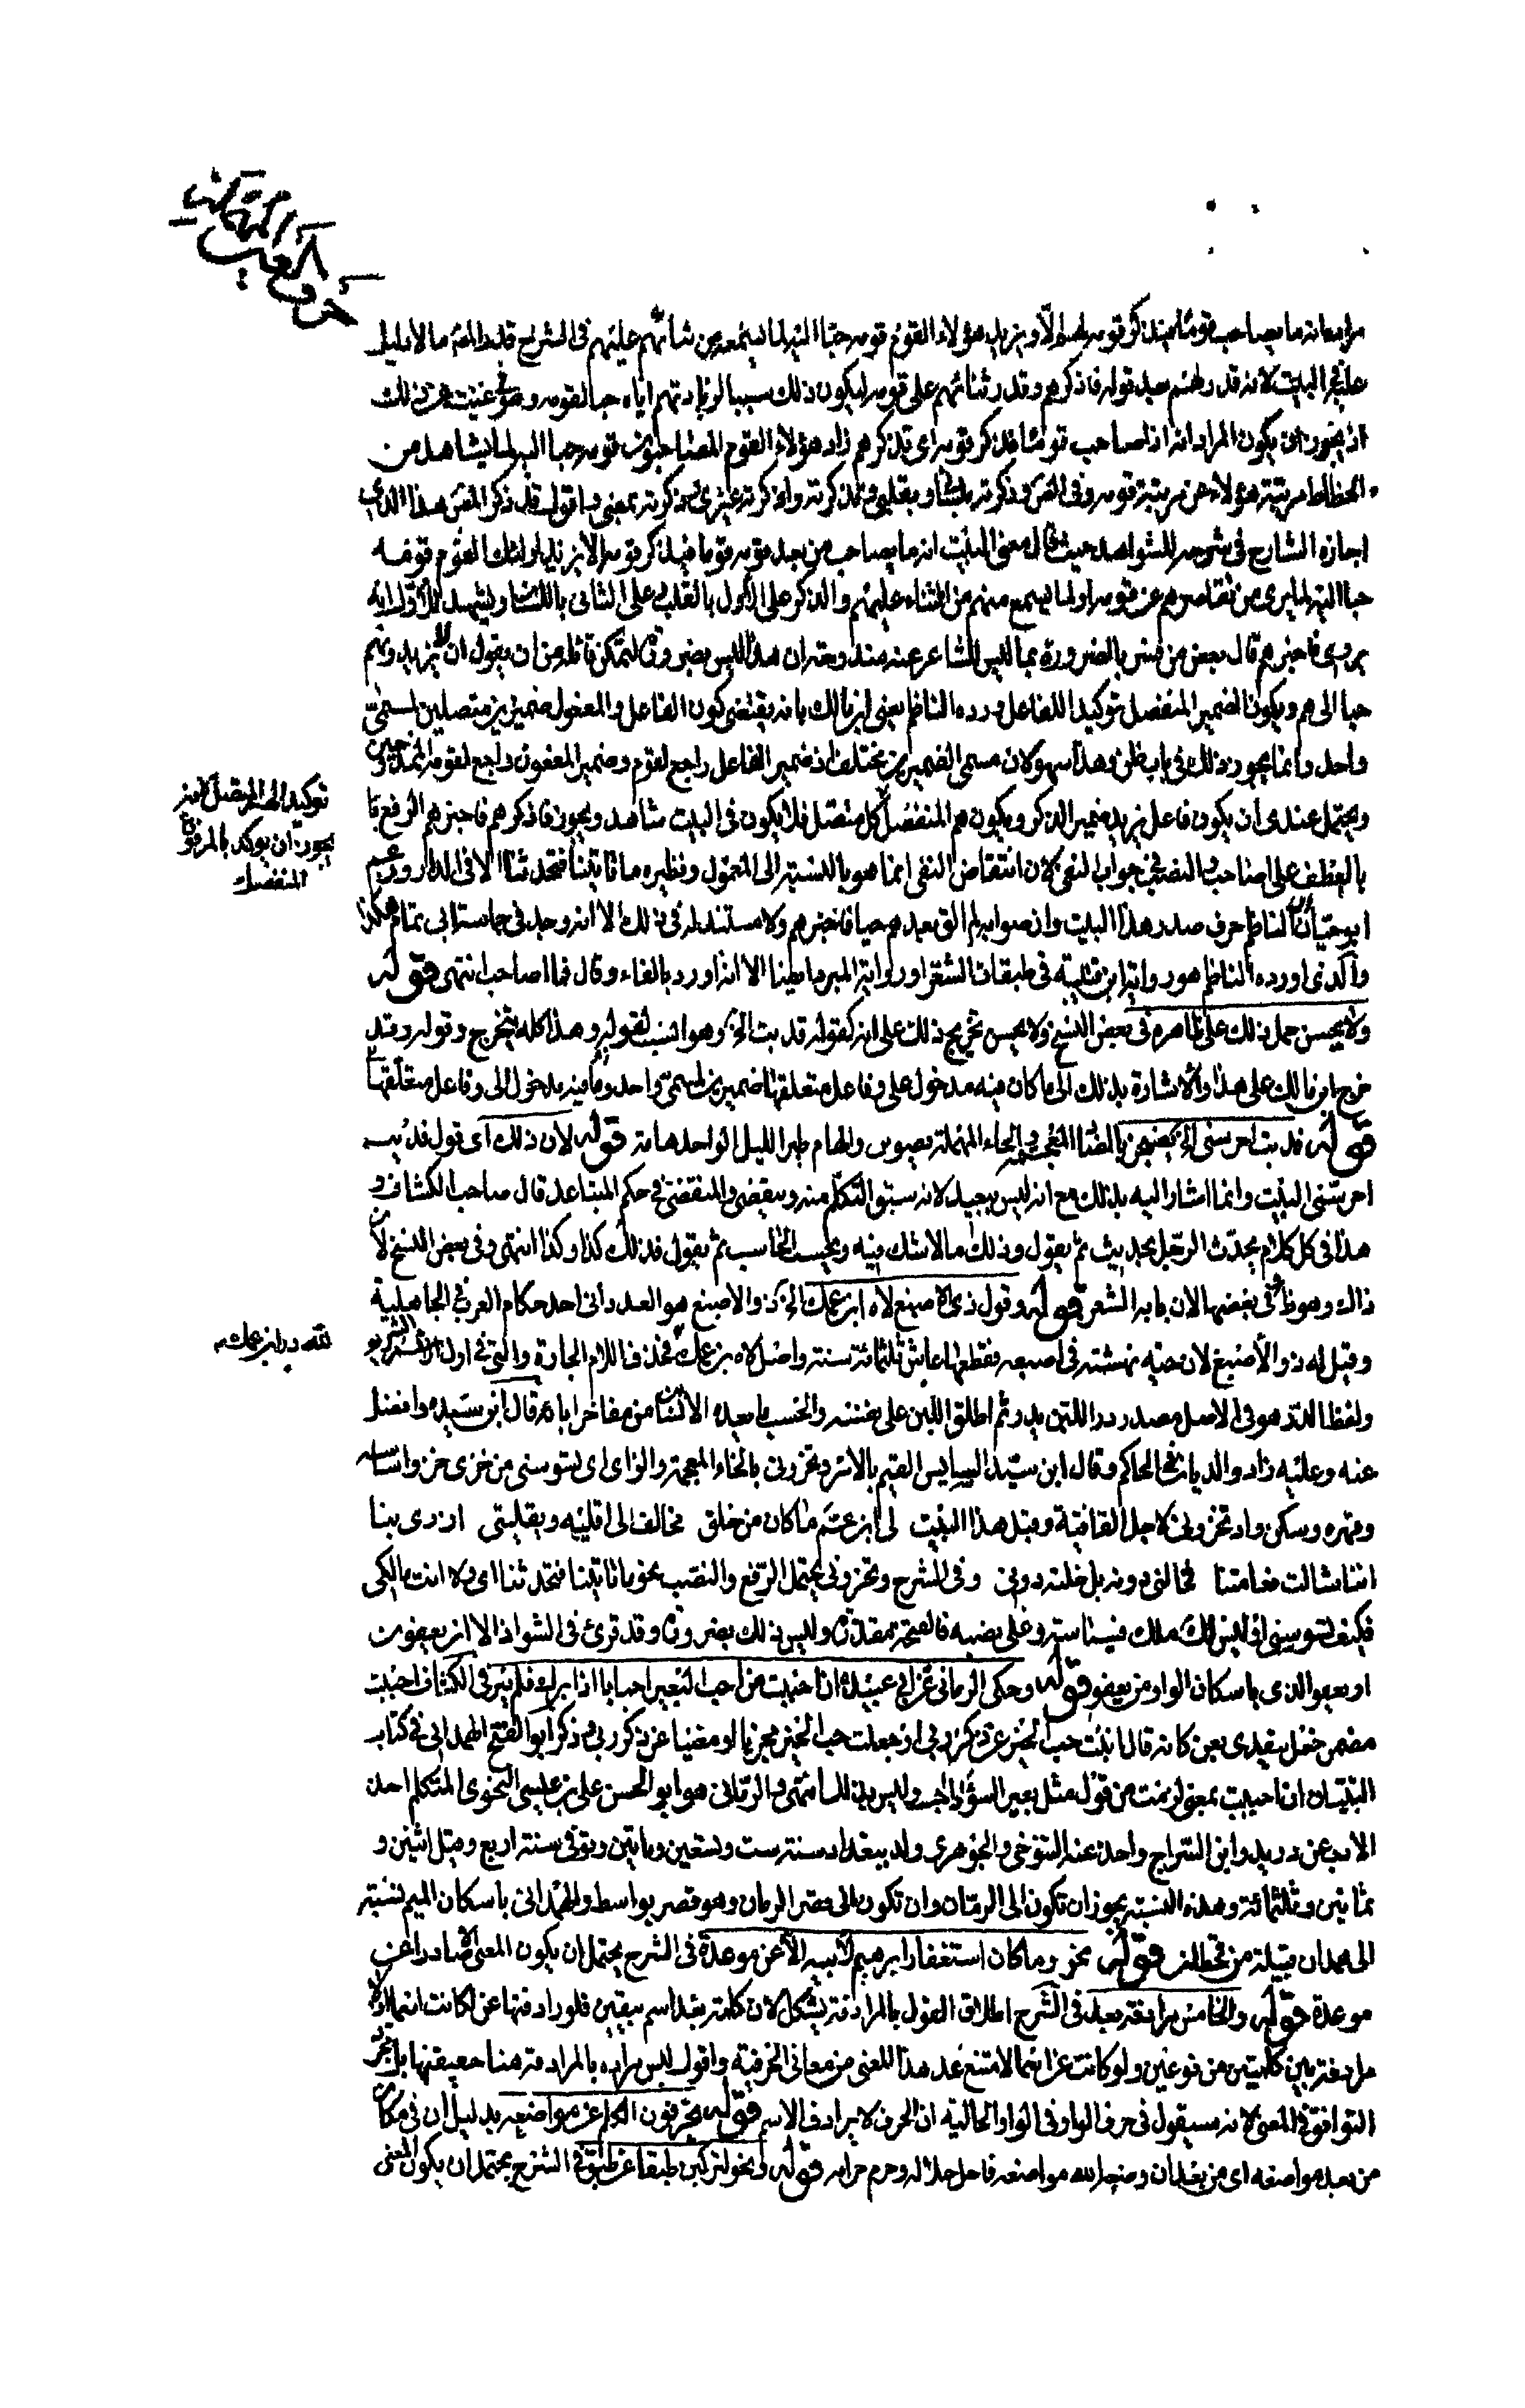 مراده انه ما يصاحب قوما فيذكر قومه لهم الا ويزيد هؤلاء القوم قومه حبا اليه لما يسمعه من ثنائهم عليهم في الشرح قلد المص
على البيت لانه قد بعد قوله فاذكرهم وقدر ثنائهم على قومه ليكون ذلك سببا لزيادتهم اياه حبا لقومه وهو عن ذلك
اذ يجوز ان يكون المراد انه اذا صاحب قوما فذكر قومه اي تذكرهم زاد هؤلاء القوم المصاحبون قومه حبا اليه لما يشاهد من
انحطاط مرتبة هؤلاء عن مرتبة قومه وفي وذكرته بلساني وبقلبي وتذكرته واذكرته غيري وذكرته بمعنى اقول قد ذكر المص هذا الذي
اجازه الشارح في شرحه للشواهد حيث قال معنى البيت انه ما يصاحب من بعد قومه قوما فيذكر قومه الا يزيد اولئك القوم قومه
حبا اليه لما يرى من تقاصرهم عن قومه او لما يسمع منهم من الثناء عليهم والذكر على الاول بالقلب وعلى الثاني باللسان ويشهد للاول انه
يروى فاخبرهم قال بعض من فسر الضرورة بما ليس للشاعر عنه مندوحة ان هذا ليس بضرورة لتمكن قائله من ان يقول الا يزيدونهم
حبا الي هم ويكون الضمير المنفصل توكيدا للفاعل ورده الناظم يعني ابن مالك بانه يقتضي كون الفاعل والمفعول ضميرين متصلين لمسمى
واحد وانما يجوز ذلك في باب ظن وهذا سهو لان مسمى الضميرين مختلف اذ ضمير الفاعل راجع لقوم وضمير المفعول راجع لقومه الممدوحين
ويحتمل عندي ان يكون فاعل يزيد ضمير الذكر ويكون هم المنفصل كل متصل فلا يكون في البيت شاهد ويجوز فاذكرهم فاخبرهم الرفع
توكيد الضمير المتصل لانه
يجوز ان يؤكد بالمرفوع
المنفصل
بالعطف على اصاحب والنصب في جواب النفي لان انتقاض النفي انما هو بالنسبة الى المعمول ونظيره ما تاتينا فتحدثنا الا في الدار وزعم
ابو حيان ان الناظم حرف صدر هذا البيت وان صوابه لم الق بعدهم حيا فاخبرهم ولا مستند له في ذلك الا انه وجد في حماسة ابي تمام هكذا
والذي اورده الناظم هو رواية ابن قتيبة في طبقات الشعراء ورواية المبرد ايضا الا انه اورده بالفاء وقال فما اصاحب انتهى قوله
ولا يحسن حمل ذلك على ظاهره في بعض النسخ ولا يحسن تخريج ذلك على انه كقوله قد بت الخ وهو انسب لقوله وهذا كله يتخرج وقوله وقد
خرج ابن مالك على هذا والاشارة بذلك الى ما كان فيه مدخول على وفاعل متعلقها ضميرين لمسمى واحد وما فيه مدخول الى وفاعل متعلقها
قوله قد بت احرسني الخ بالضاد المعجمة والحاء المهملة يصوت والهام طير الليل الواحد هامة قوله لان ذلك اي قول قد بت
احرسني البيت وانما اشار اليه بذلك مع انه ليس ببعيد لانه سبق التكلم منه وينقضي والمنقضي في حكم المتباعد قال صاحب الكشاف و
هذا في كل كلام يحدث الرجل بحديث ثم يقول وذلك ما لا شك فيه ويحسب الحاسب ثم يقول فذلك كذا وكذا انتهى وفي بعض النسخ لان
ذاك وهو في بعضها الان باب الشعر قوله وقول ذي الاصبع لاه ابن عمك الخ ذو الاصبع هو العدواني احد حكام العرب في الجاهلية
وقيل له ذو الاصبع لان حية نهشته في اصبعه فقطعها عاش ثلثمائة سنة واصل لاه بن عمك فحذف اللام الجارة والتي في اول الاسم الشريف
لله در ابن عمك
ولفظ الدر هو في الاصل مصدر در اللبن يدر ثم اطلق اللبن على نفسه والحسب ما يعده الانسان من مفاخر ابائه قال ابن سيده وافضل
عنه وعليه زاد والديان الحاكم وقال ابن سيد السايس القيم بالامر وتخزوني بالخاء المعجمة والزاي اي تسوسني من خزى خزوا ساسه
وقهره وسكن واو تخزوني لاجل القافية وقبل هذا البيت لي ابن عم ما كان من خلق مخالف لي اقليه ويقليني ازرى بنا
اننا شالت نعامتنا فخالني دونه بل خلته دوني وفي الشرح وتخزوني يحتمل الرفع والنصب نحو ما تاتينا فتحدثنا اي ولا انت مالكي
فكيف تسوسني اي ليس لك ملك فسياسة وعلى نصبه فالفتحة مقدرة وليس ذلك بضرورة وقد قرئ في الشواذ الا ان يعفون
او يعفو الذي باسكان الواو من يعفو قوله وحكى الرماني عن ابي عبيدة ان احببت من احب البعير احبابا اذا برك فلم يثر في الكشاف احببت
مضمن فعل يتعدى بعن كانه قال انبت حب الخير عن ذكر ربي او جعلت حب الخير مجزيا او مغنيا عن ذكر ربي وذكر ابو الفتح الهمداني في كتاب
التبيان ان احببت بمعنى لزمت من قوله مثل بعير السوء اذ احبا وليس بذاك انتهى والرماني هو ابو الحسن علي بن عيسى النحوي المتكلم اخذ
الادب عن دريد وابن السراج واخذ عنه التنوخي والجوهري ولد ببغداد سنة ست وتسعين ومايتين وتوفي سنة اربع وقيل اثنين و
ثمانين وثلثمائة وهذه النسبة يجوز ان تكون الى الرمان وان تكون الى قصر الرمان وهو قصر بواسط والهمداني باسكان الميم نسبة
الى همدان قبيلة من قحطان قوله نحو وما كان استغفار ابرهيم لابيه الا عن موعدة في الشرح يحتمل ان يكون المعنى الا صادرا عن
موعدة قوله والخامس مرادفة بعد في الشرح اطلاق القول بالمرادفة يشكل لان كلمة بعد اسم بيقين فلو رادفتها عن لكانت اسما اذ لا
مرادفة بين كلمتين من نوعين ولو كانت عن اسما لامتنع عد هذا المعنى من معاني الحرفية واقول ليس مراده بالمرادفة هنا حقيقتها بل مجرد
التوافق في المعنى لانه سيقول في حرف الواو في الواو الحالية ان الحرف لا يرادف الاسم قوله يحرفون الكلم عن مواضعه بدليل ان في مكان
من بعد مواضعه اي من بعد ان وضعه الله مواضعه فاحل حلاله وحرم حرامه قوله ونحو لتركبن طبقا عن طبق في الشرح يحتمل ان يكون المعنى